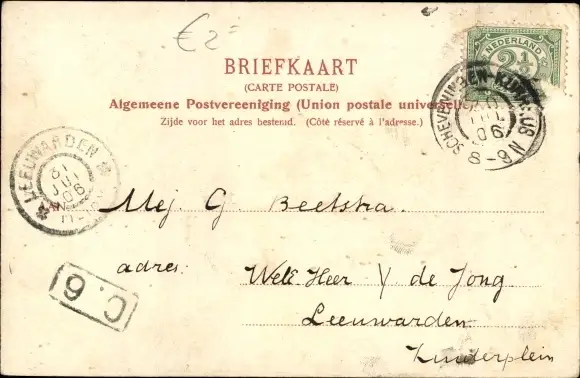 €2-
NEDERLAND
2½
BRIEFKAART
(CARTE POSTALE)
Algemeene Postvereeniging (Union postale universelle)
Zijde voor het adres bestemd. (Côté réservé à l'adresse.)
SCHEVENINGEN-KURHAUS
06
8-9 N
LEEUWARDEN
JUL
06
Mej. G. Beetstra.
adres:
Welb. Heer Y de Jong
Leeuwarden
Zuiderplein
C. 6